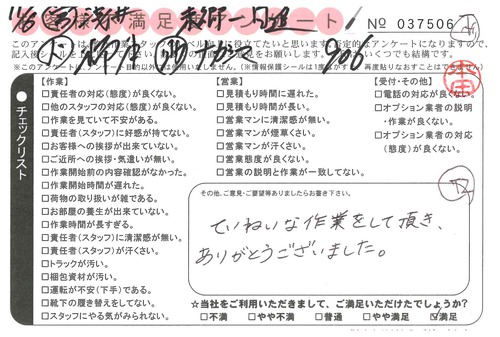 お客様満足度アンケート
№ 037506
このアンケートは、
否定的なアンケートになりますので、
いくつでも結構です。
※このアンケートは、
【作業】
□責任者の対応(態度)が良くない。
□他のスタッフの対応(態度)が良くない。
□作業を見ていて不安がある。
□責任者(スタッフ)に好感が持てない。
□お客様への挨拶が出来ていない。
□ご近所への挨拶・気遣いが無い。
□作業開始前の内容確認がなかった。
□作業開始時間が遅れた。
□荷物の取り扱いが雑である。
□お部屋の養生が出来ていない。
□作業時間が長すぎる。
□責任者(スタッフ)に清潔感が無い。
□責任者(スタッフ)が汗くさい。
□トラックが汚い。
□梱包資材が汚い。
□運転が不安(下手)である。
□靴下の履き替えをしてない。
□スタッフにやる気がみられない。
【営業】
□見積もり時間に遅れた。
□見積もり時間が長い。
□営業マンに清潔感が無い。
□営業マンが煙草くさい。
□営業マンが汗くさい。
□営業態度が良くない。
□営業の説明と作業が一致してない。
【受付・その他】
□電話の対応が良くない。
□オプション業者の説明
・作業が良くない。
□オプション業者の対応
(態度)が良くない。
チェックリスト
その他、ご意見・ご要望等ありましたらお書き下さい。
ていねいな作業をして頂き、
ありがとうございました。
☆当社をご利用いただきまして、ご満足いただけたでしょうか?
□不満 □やや不満 □普通 □やや満足 ☑満足